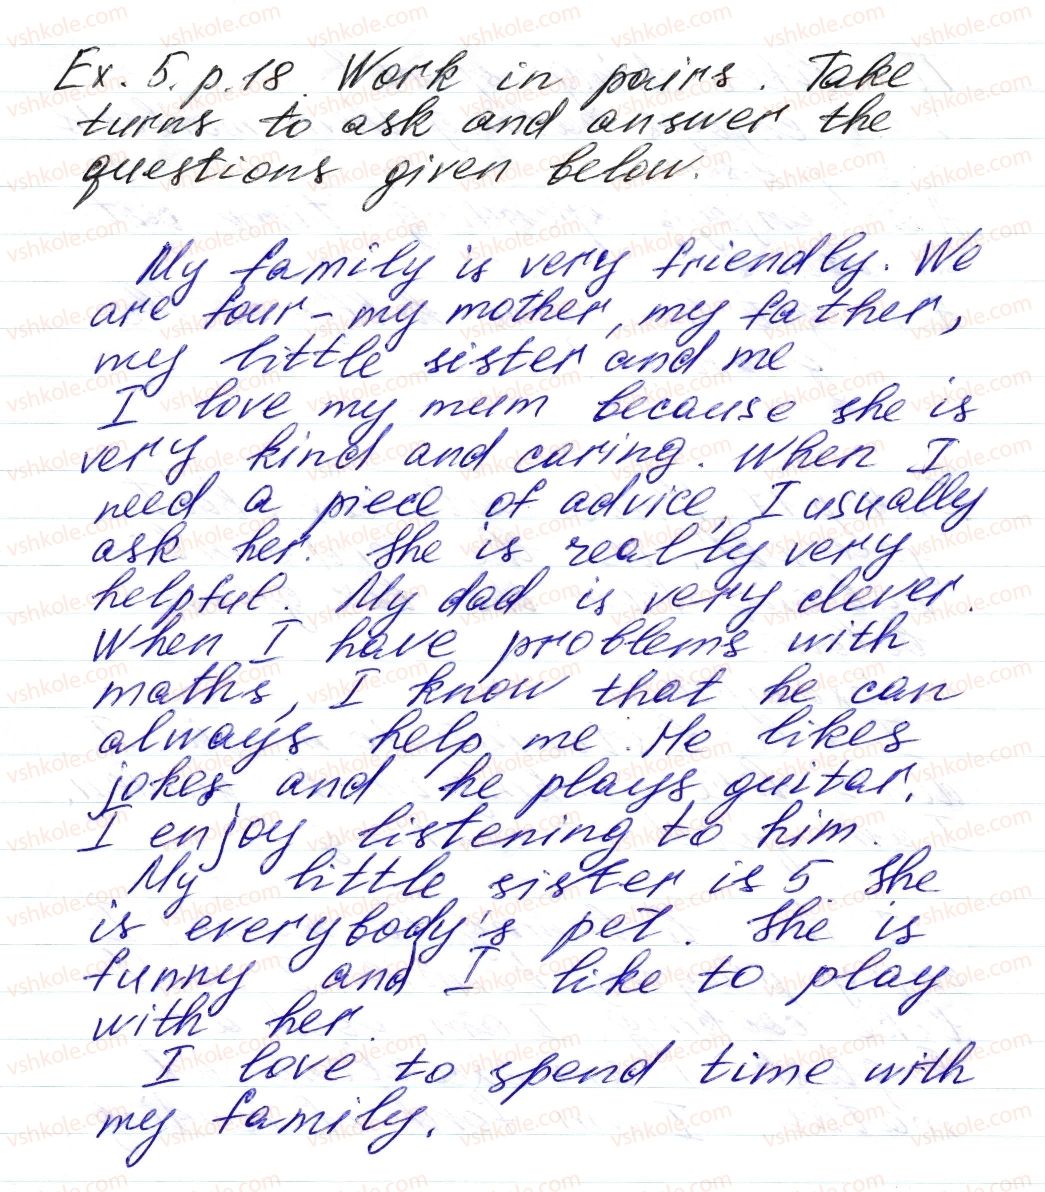 Ex. 5. p. 18. Work in pairs. Take
turns to ask and answer the
questions given below.
My family is very friendly. We
are four - my mother, my father,
my little sister and me.
I love my mum because she is
very kind and caring. When I
need a piece of advice, I usually
ask her. She is really very
helpful. My dad is very clever.
When I have problems with
maths, I know that he can
always help me. He likes
jokes and he plays guitar.
I enjoy listening to him.
My little sister is 5. She
is everybody's pet. She is
funny and I like to play
with her.
I love to spend time with
my family.